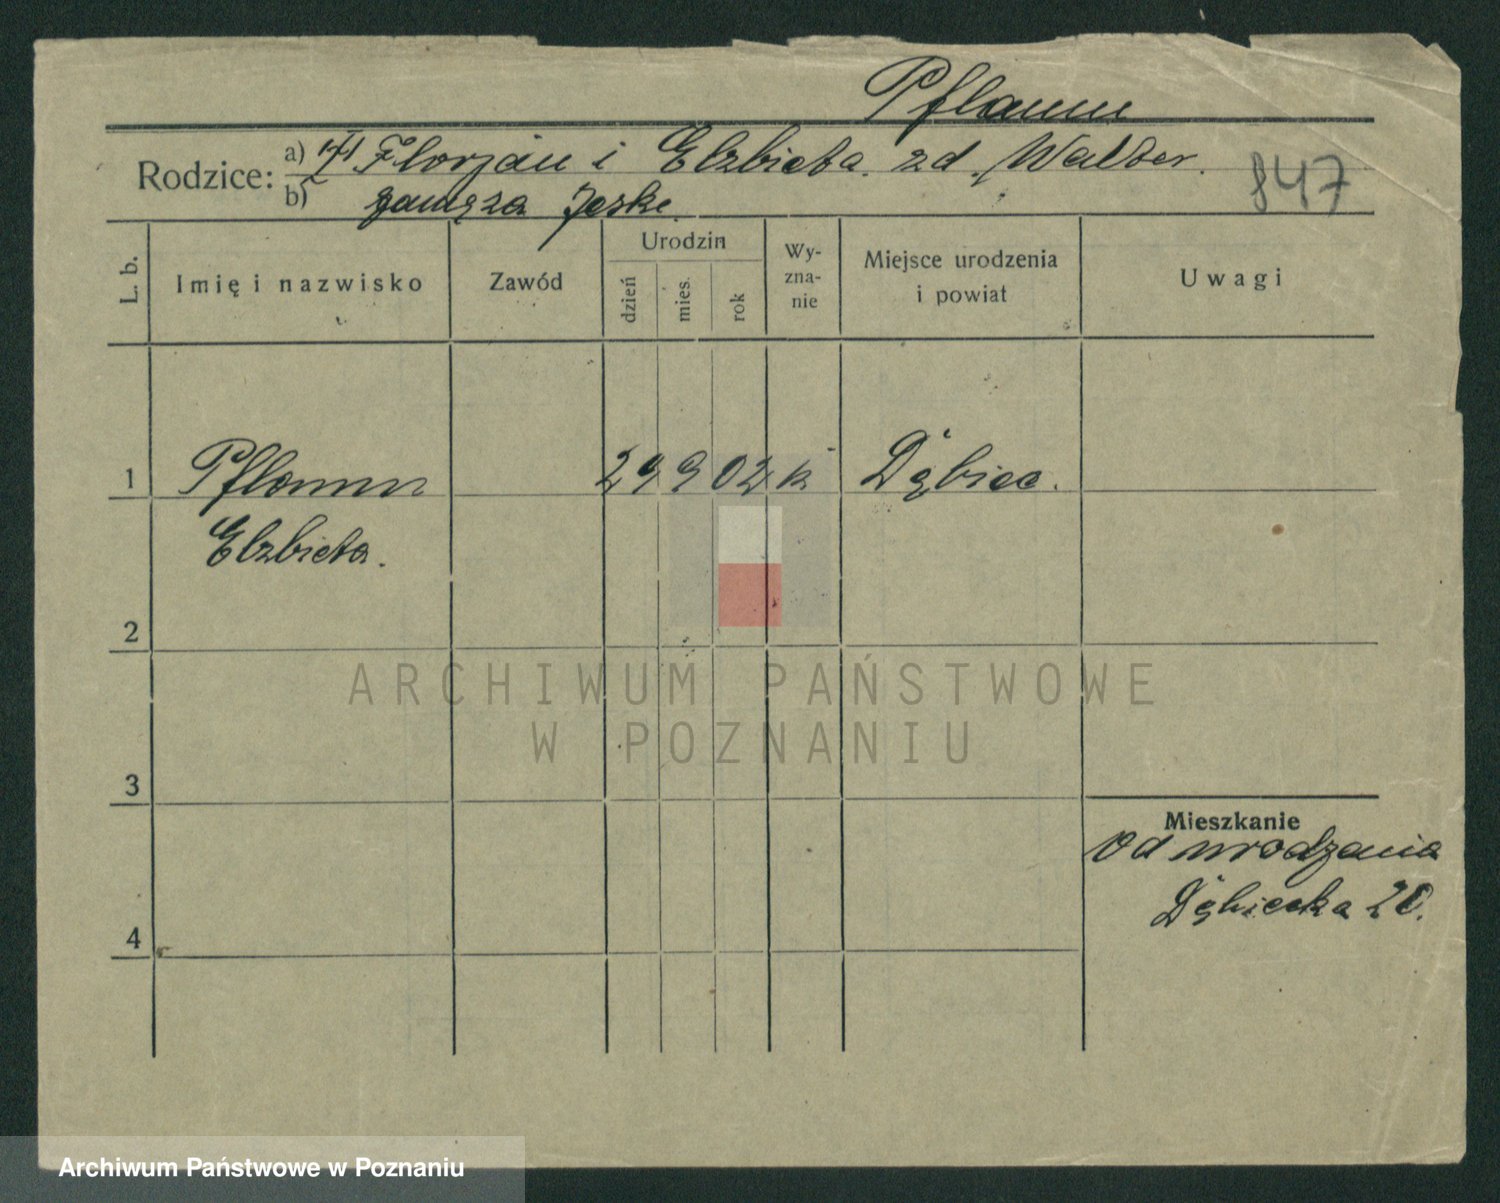 Pflaum
Rodzice: a) Florjan i Elzbieta zd. Walter.
b) zamęza Jeske.
847
L. b.
Imię i nazwisko
Zawód
Urodzin
dzień
mies.
rok
Wy-
zna-
nie
Miejsce urodzenia
i powiat
Uwagi
1 Pflaum 29 9 02 k Dębiec.
Elzbieta.
2
ARCHIWUM PAŃSTWOWE
W POZNANIU
3
Mieszkanie
Od urodzenia
Dębiecka 20.
4
Archiwum Państwowe w Poznaniu